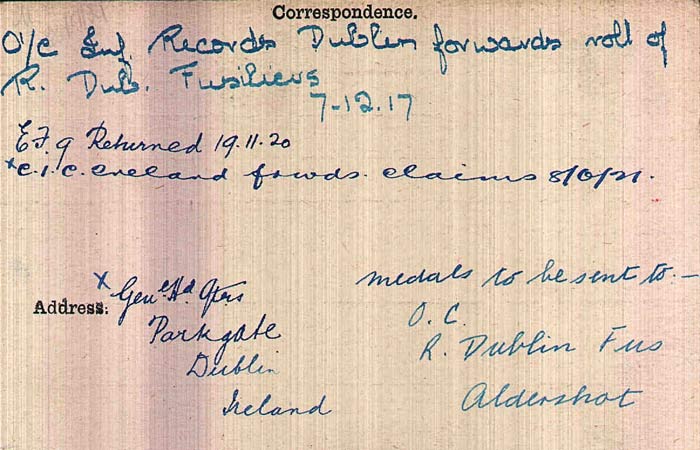 Correspondence.
O/c Inf. Records Dublin forwards roll of
R. Dub. Fusiliers
7-12.17
E.F. 9 Returned 19.11.20
x C. i. C. Ireland forwds. claims
Address:
x Genl Hd Qtrs
Parkgate
Dublin
Ireland
medals to be sent to. —
O. C.
R. Dublin Fus
Aldershot